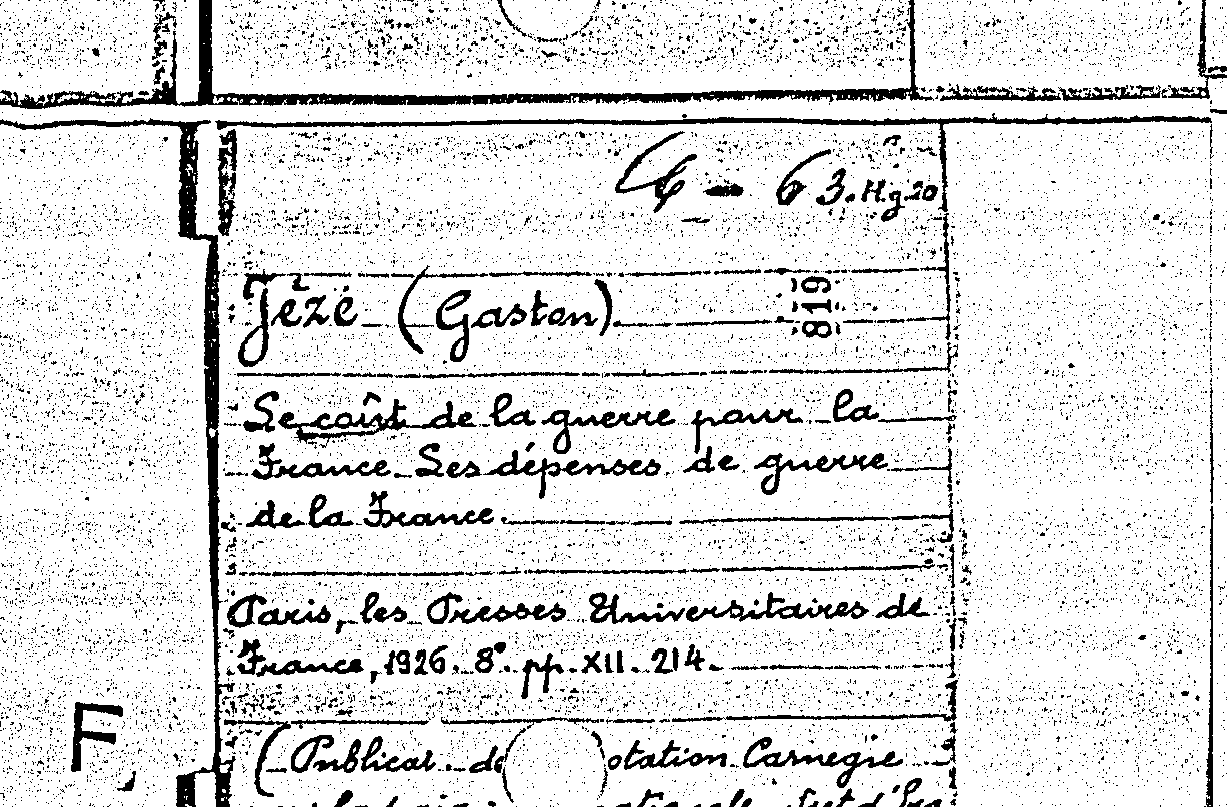 63.Hg.20
Jèze (Gaston).
819
Le coût de la guerre pour la
France. Les dépenses de guerre
de la France.
Paris, les Presses Universitaires de
France, 1926. 8°. pp. XII. 214.
F
(Publicat. de otation Carnegie